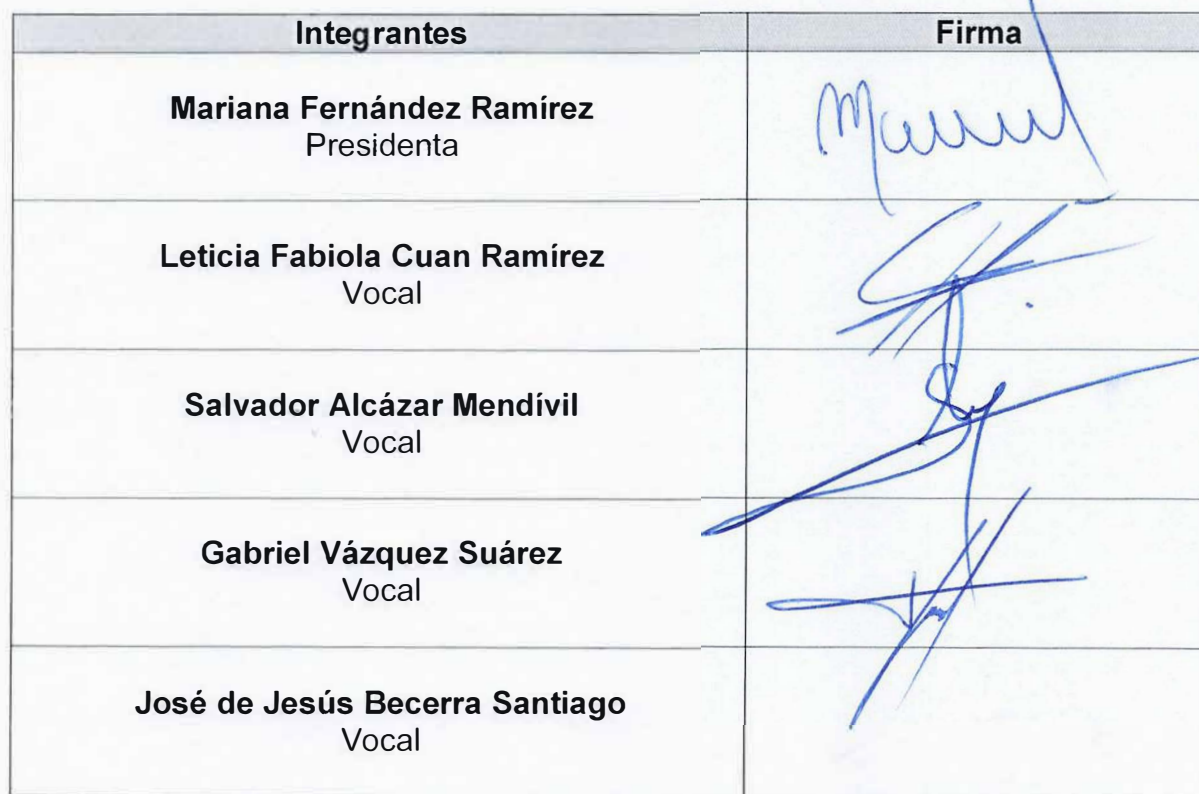 Integrantes Firma
Mariana Fernández Ramírez
Presidenta
Leticia Fabiola Cuan Ramírez
Vocal
Salvador Alcázar Mendívil
Vocal
Gabriel Vázquez Suárez
Vocal
José de Jesús Becerra Santiago
Vocal